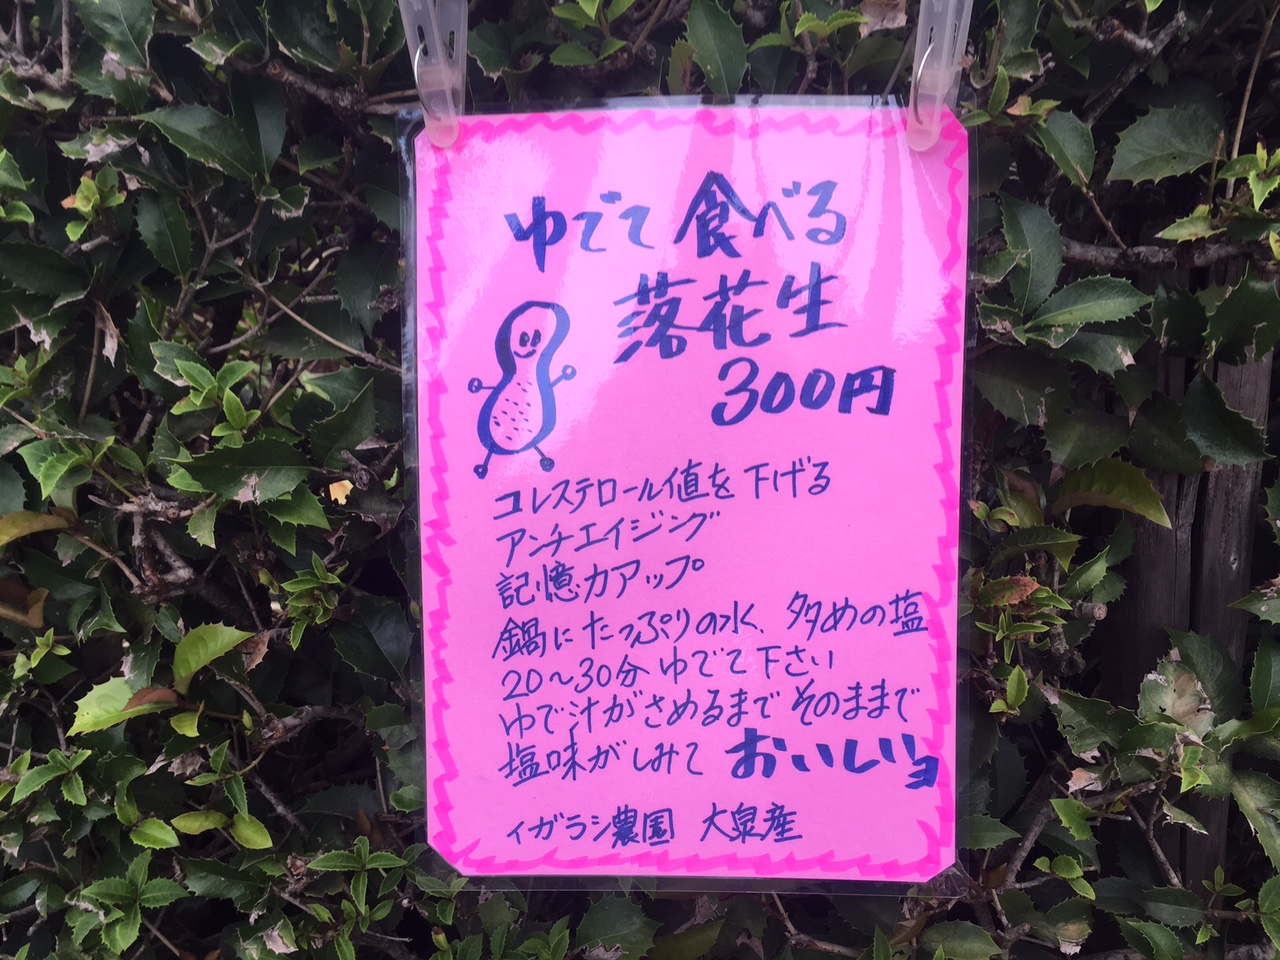 ゆでて食べる
落花生
300円
コレステロール値を下げる
アンチエイジング
記憶力アップ
鍋にたっぷりの水、多めの塩
20〜30分ゆでて下さい
ゆで汁がさめるまでそのままで
塩味がしみておいしいヨ
イガラシ農園 大泉産